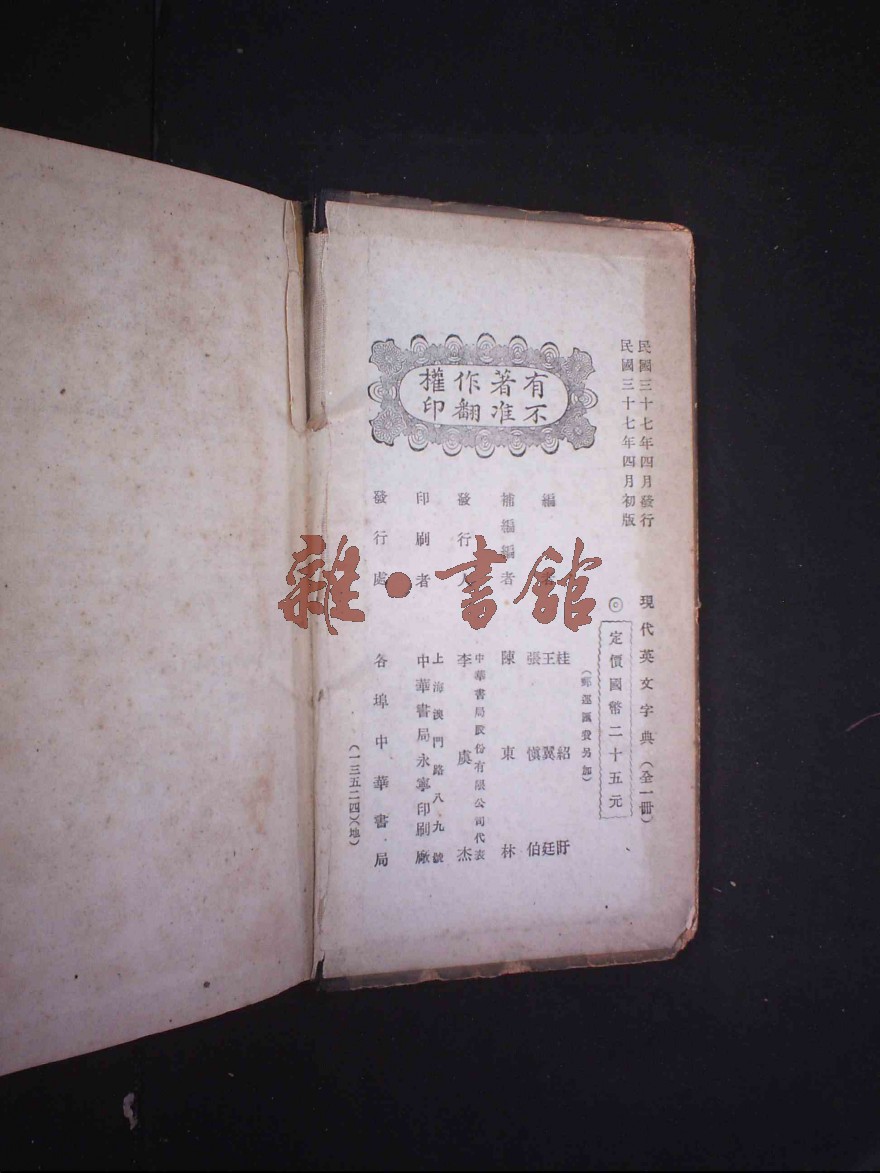 民國三十七年四月發行
民國三十七年四月初版
現代英文字典（全一冊）
◎定價國幣二十五元
（郵運匯費另加）
編
桂紹盱
王翼廷
張慎伯
補編編者
陳東林
發行人
中華書局股份有限公司代表
李虞杰
印刷者
上海澳門路八九號
中華書局永寧印刷廠
發行處
各埠中華書局
（一三五二四）（地）
有著作權
不准翻印
雜·書館